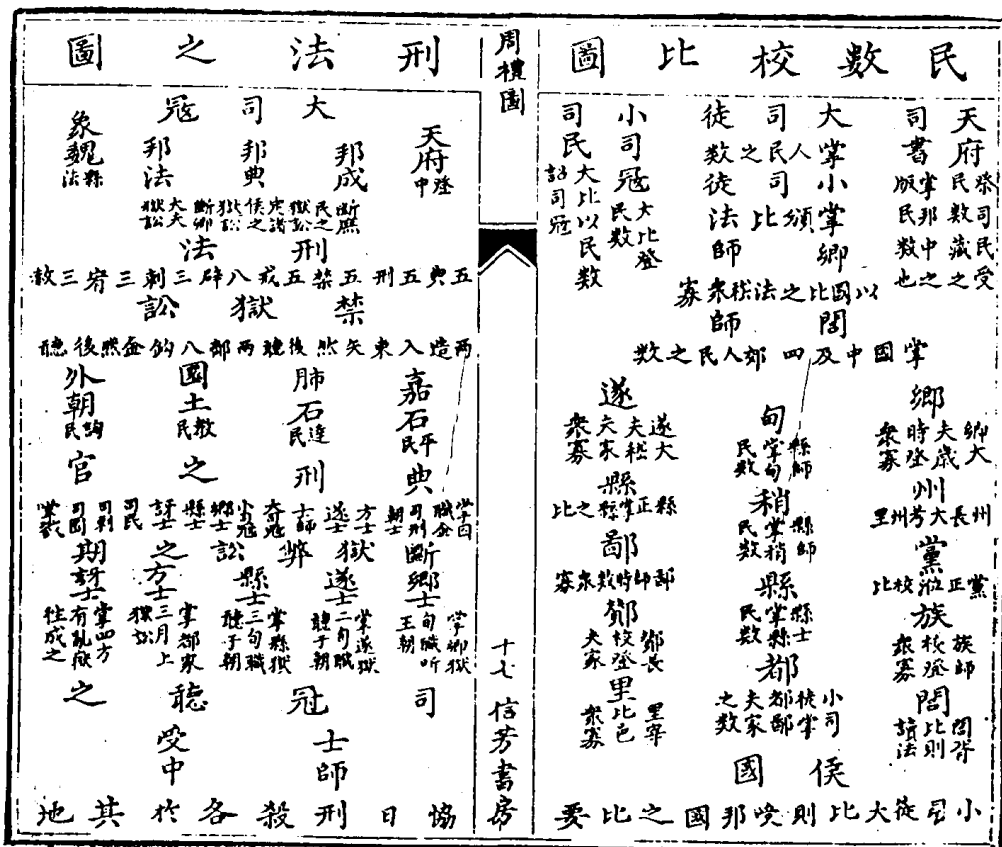 民數校比圖
天府
祭司民受
民數藏之
司書
掌邦中之
版民數也
大司徒
掌人民之數
小司徒
掌頒比法
鄉師
以國比之法稽衆寡
閭師
掌國中及四郊人民之數
小司寇
大比登
民數
司民
大比以民數
詔司寇
鄉
鄉大夫歲時登衆寡
州
州長大考州里
黨
黨正涖校比
族
族師校登衆寡
閭
閭胥比則讀法
甸
縣師掌甸民數
稍
縣師掌稍民數
縣
縣士掌縣民數
都
小司徒掌都鄙夫家之數
遂
遂大夫稽夫家衆寡
縣
縣正掌縣之比
鄙
鄙師時數衆寡
酇
酇長校登夫家
里
里宰比邑衆寡
侯國
小司徒大比則受邦國之比要
周禮圖
十七
信芳書房
刑法之圖
大司寇
天府
登中
邦成
斷庶民之獄訟
邦典
定諸侯之獄訟
邦法
斷卿大夫獄訟
象魏
縣法
刑法
五典五刑五禁五戒八辟三刺三宥三赦
禁獄訟
兩造入束矢然後聽兩劑入鈞金然後聽
嘉石
平民
肺石
達民
圜土
教民
外朝
詢民
典刑之官
掌囚
職金
司刑
朝士
方士
遂士
士師
小司寇
鄉士
縣士
訝士
司民
司刺
司圜
掌戮
斷獄弊訟之期
鄉士
掌鄉獄
旬職听
王朝
遂士
掌遂獄
二旬職
聽于朝
縣士
掌縣獄
三旬職
聽于朝
方士
掌都家
三月上
獄訟
訝士
掌四方
有亂獄
往成之
司寇聽之
士師受中
協日刑殺各於其地